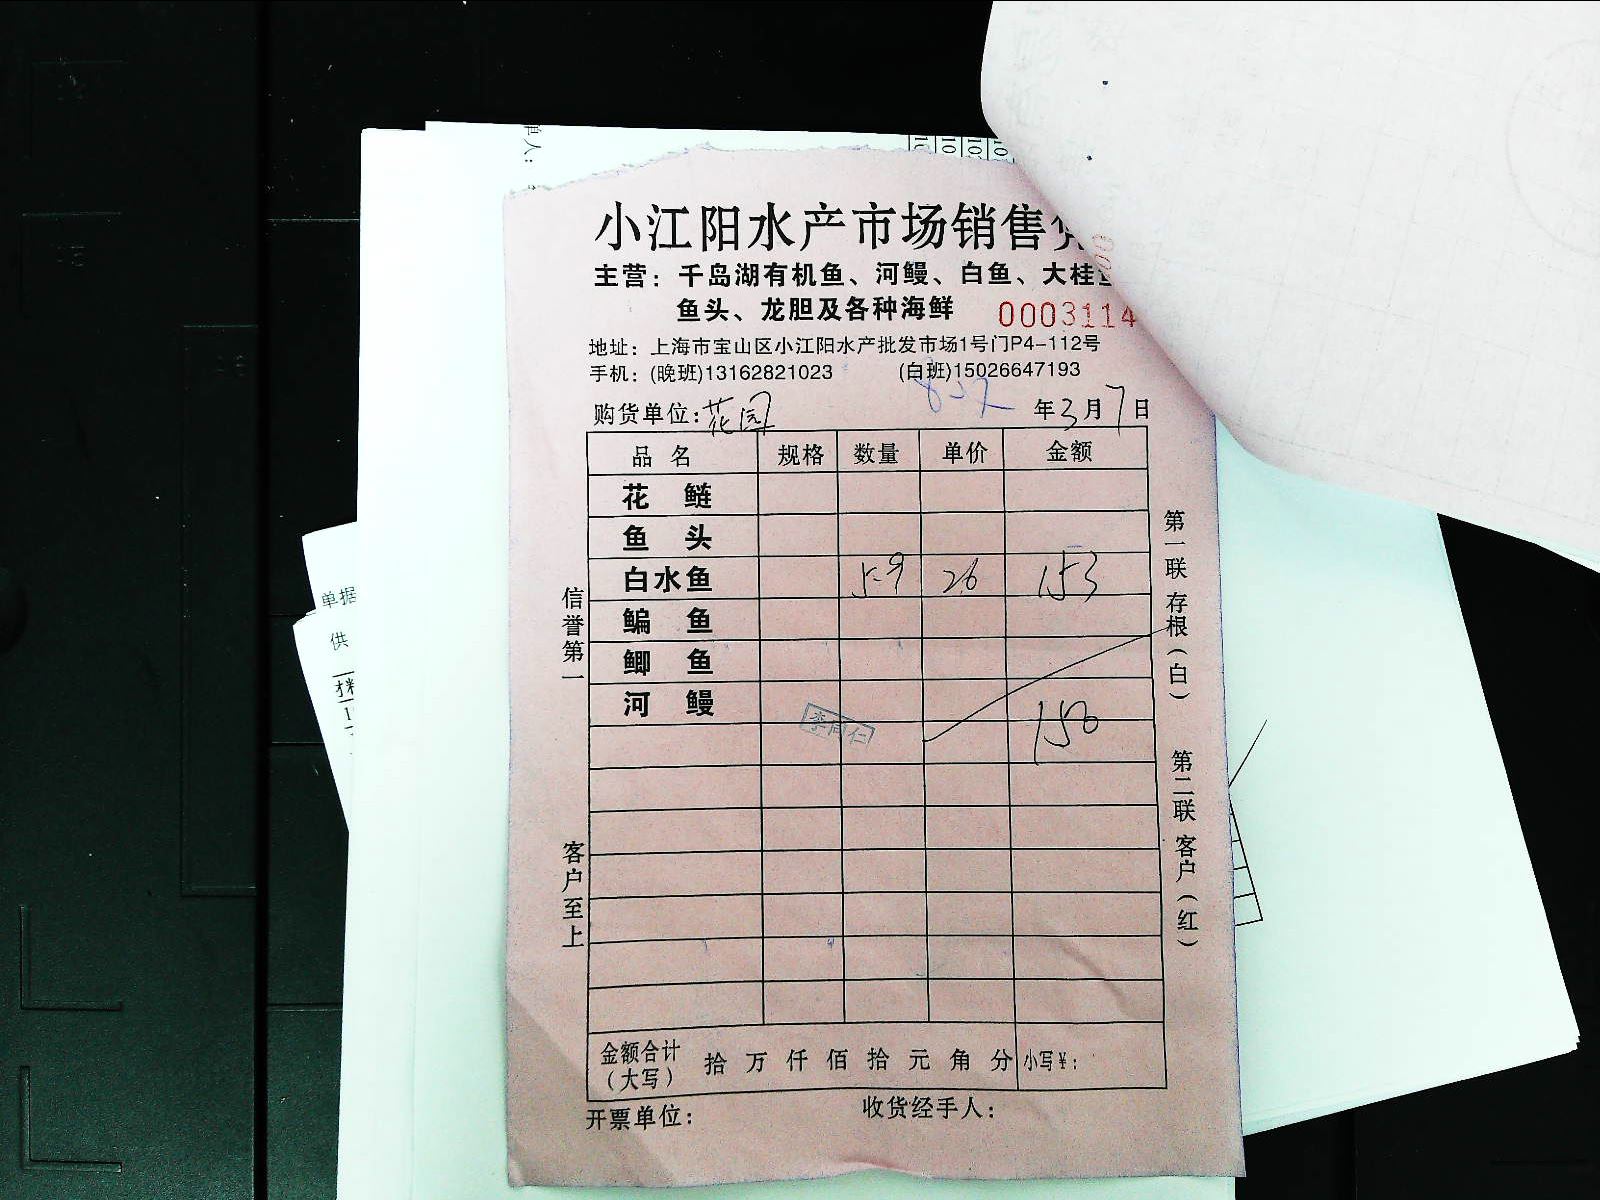 单人:
小江阳水产市场销售
主营：千岛湖有机鱼、河鳗、白鱼、大桂
鱼头、龙胆及各种海鲜
0003114
地址：上海市宝山区小江阳水产批发市场1号门P4-112号
手机：(晚班)13162821023 (白班)15026647193
购货单位:花园 年3月7日
品名 规格 数量 单价 金额
花鲢
鱼头
白水鱼 5.9 26 153
鳊鱼
鲫鱼
河鳗
150
李同仁
金额合计(大写) 拾万仟佰拾元角分 小写¥:
开票单位: 收货经手人:
信誉第一
客户至上
第一联 存根(白)
第二联 客户(红)
单据
供